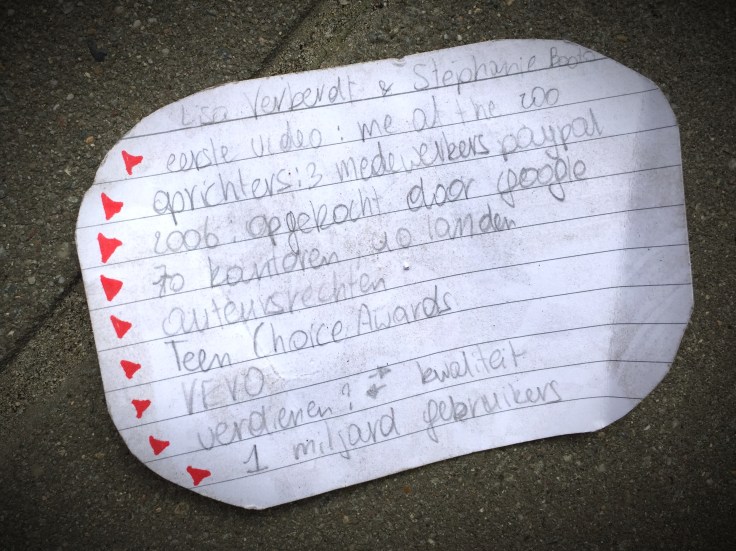 Lisa Verberdt & Stephanie
eerste video: me at the zoo
oprichters: 3 medewerkers paypal
2006, opgekocht door google
70 kantoren, 40 landen
auteursrechten
Teen Choice Awards
VEVO
verdienen? kwaliteit
1 miljard gebruikers